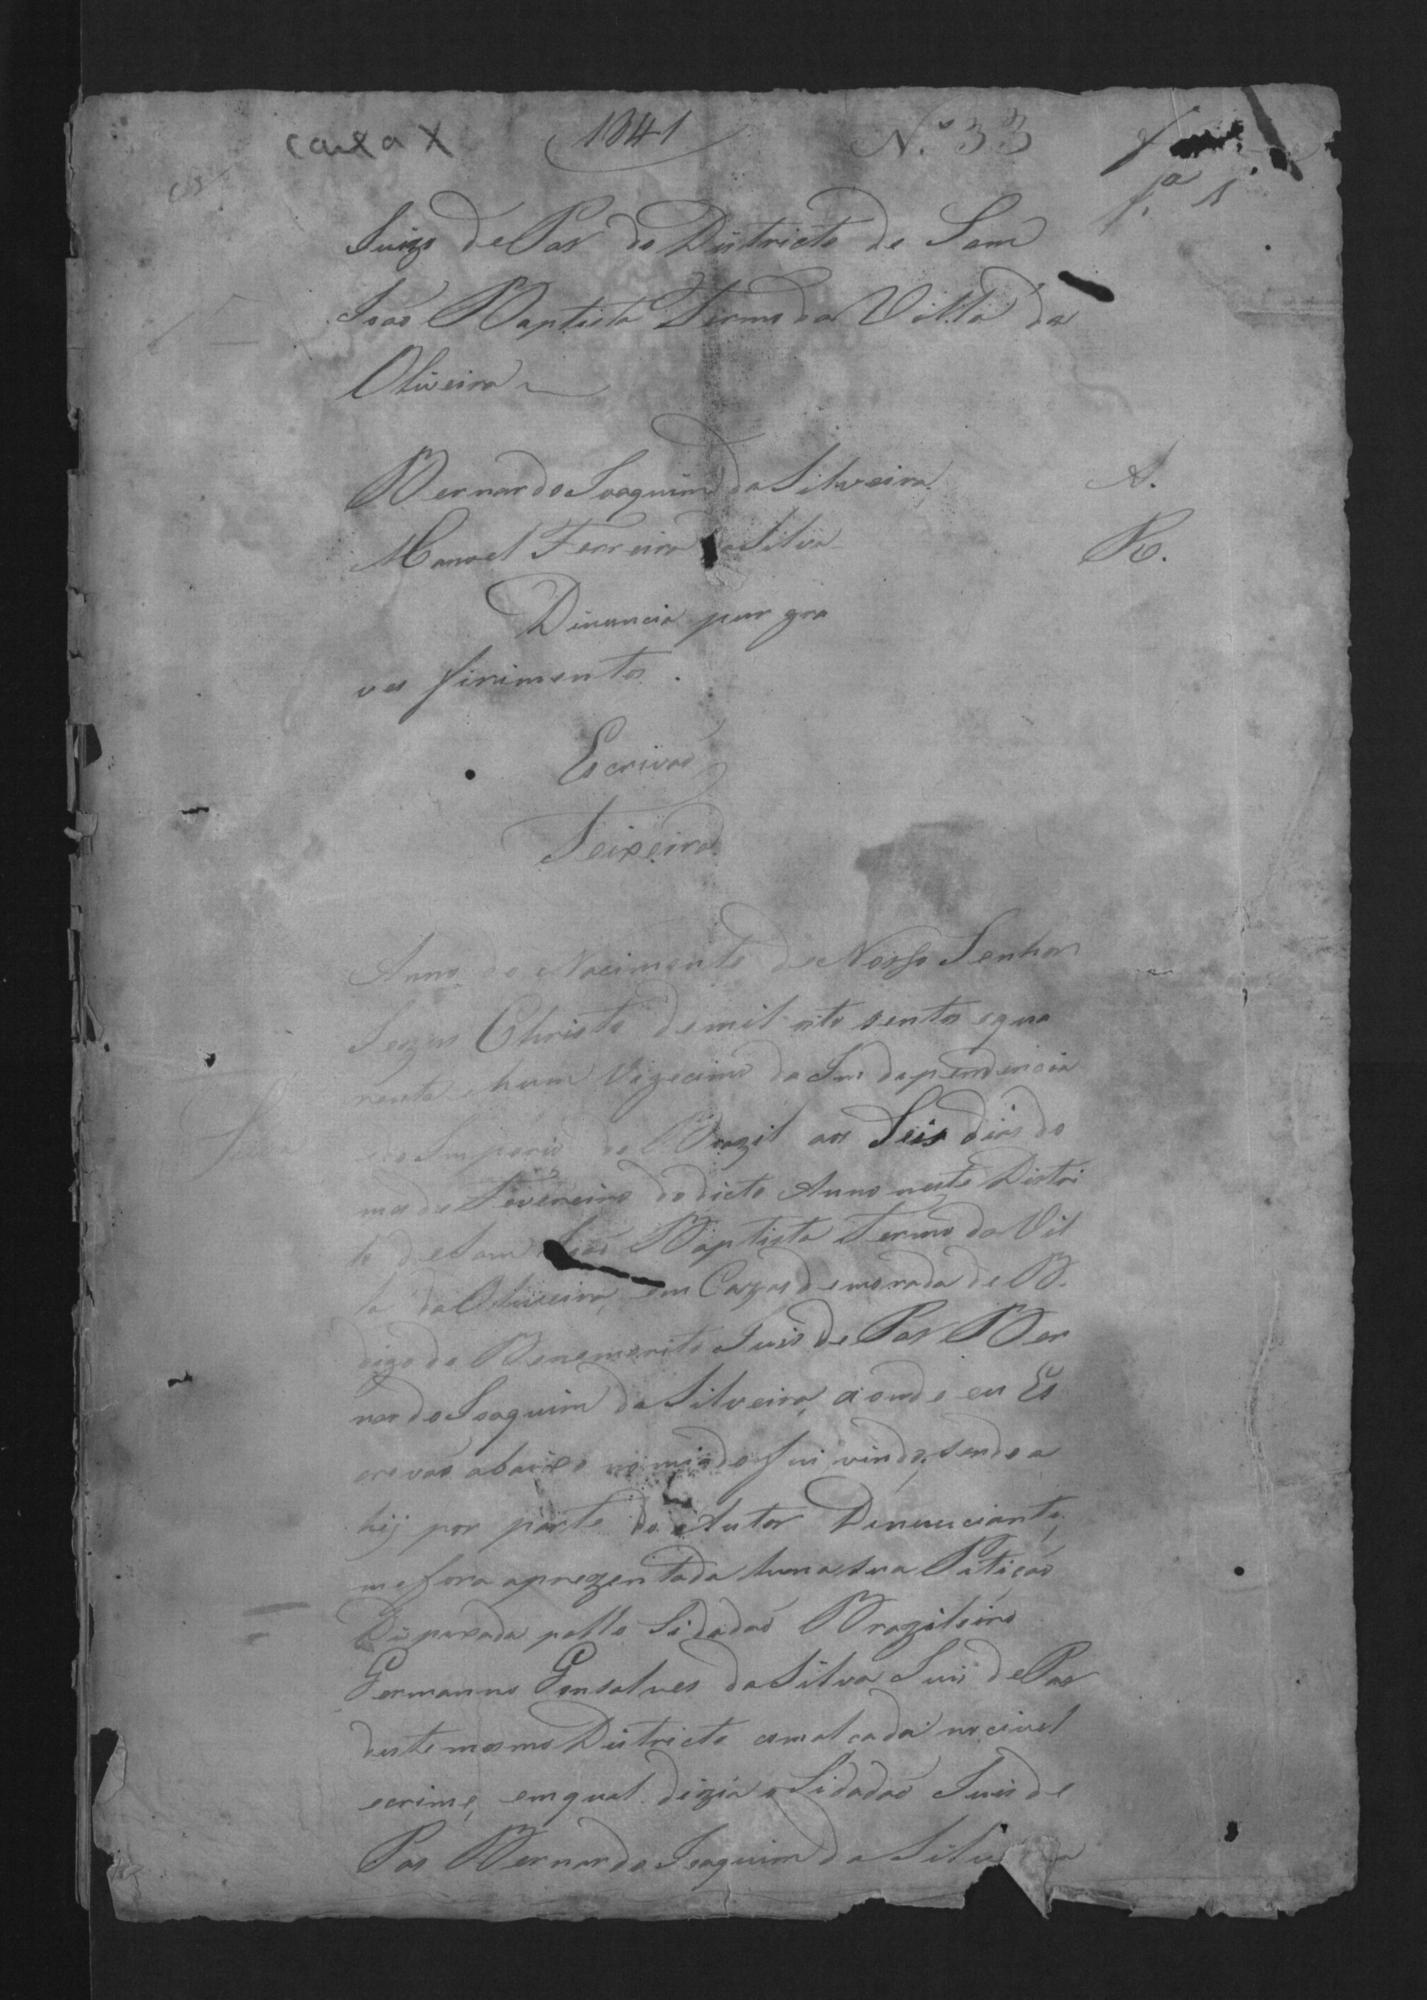 caixa X 1841 Nº 33
fª 1
Juizo de Pas do Districto de Sam
João Baptista Termo da Villa da
Oliveira
Bernardo Joaquim da Silveira A.
Manoel Ferreira da Silva R.
Dinuncia pur gra
ves firimentos.
Escrivão
Teixeira
Anno do Nacimento de Nosso Senhor
Jezus Christo de mil oito sentos e qua
renta hum Vigecimo da Indapendencia
e do Imperio do Brazil aos Seis dias do
mes de Fevereiro do dicto Anno neste Distri
to de Sam João Baptista Termo da Vil
la da Oliveira, em Cazas de morada de B.
digo do Benemerito Juis de Pas Ber
nardo Joaquim da Silveira, aonde eu Es
crivão abaixo nomiado fui vindo, sendo a
hij por parte do Autor Denunciante,
me fora aprezentada huma sua Pitição
Dispaxada pello Sidadão Brazileiro
Germanno Gonsalves da Silva Juis de Pas
deste mesmo Districto com alcada no civel
e crime, em qual dizia o Sidadão Juis de
Pas Bernardo Joaquim da Silveira